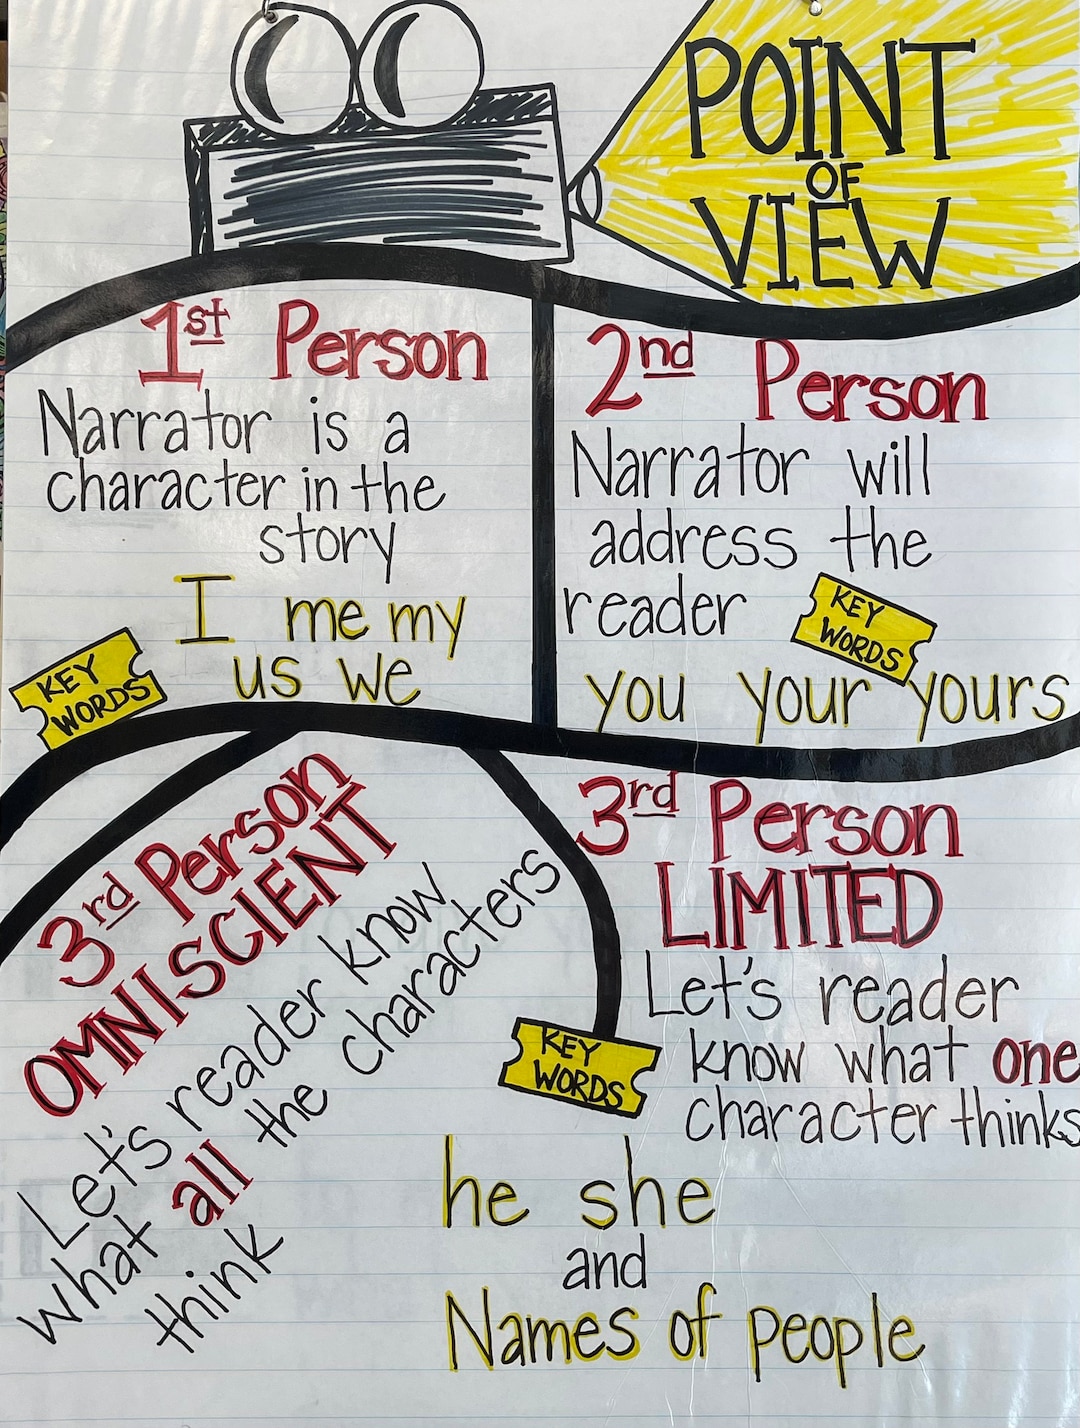 POINT
OF
VIEW
1st Person
Narrator is a
character in the
story
KEY
WORDS
I me my
us we
2nd Person
Narrator will
address the
reader
KEY
WORDS
you your yours
3rd Person
OMNISCIENT
Let's reader know
what all the characters
think
3rd Person
LIMITED
Let's reader
know what one
character thinks
KEY
WORDS
he she
and
Names of people